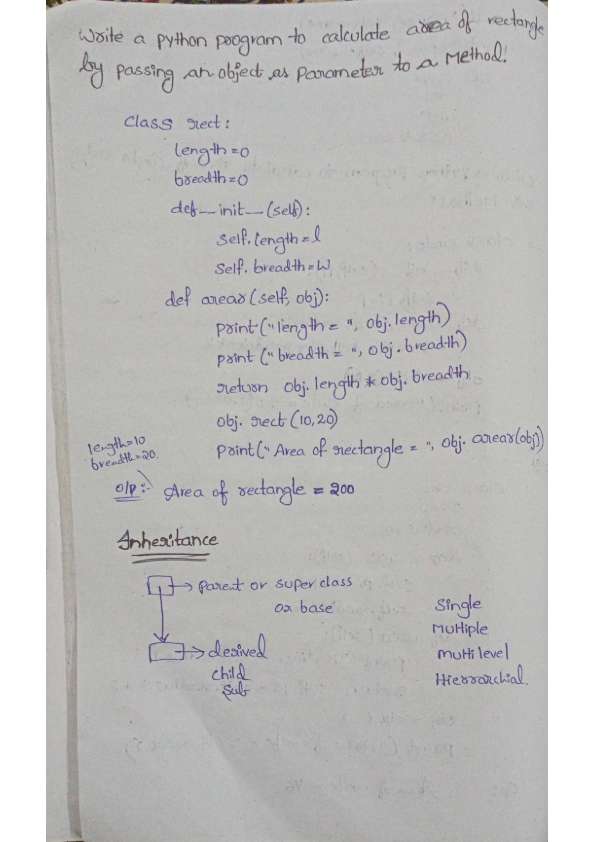 Write a python program to calculate area of rectangle
by passing an object as parameter to a Method.
Class rect:
length=0
breadth=0
def__init__(self):
self.length=l
self.breadth=w
def arear(self, obj):
print("length = ", obj.length)
print ("breadth = ", obj.breadth)
return obj.length * obj.breadth
obj. rect (10,20)
length=10
breadth=20.
print(" Area of rectangle = ", obj. arear(obj))
o/p:- Area of rectangle = 200
Inheritance
parent or super class
or base
derived
child
sub
Single
Multiple
multi level
Hierrarchial.